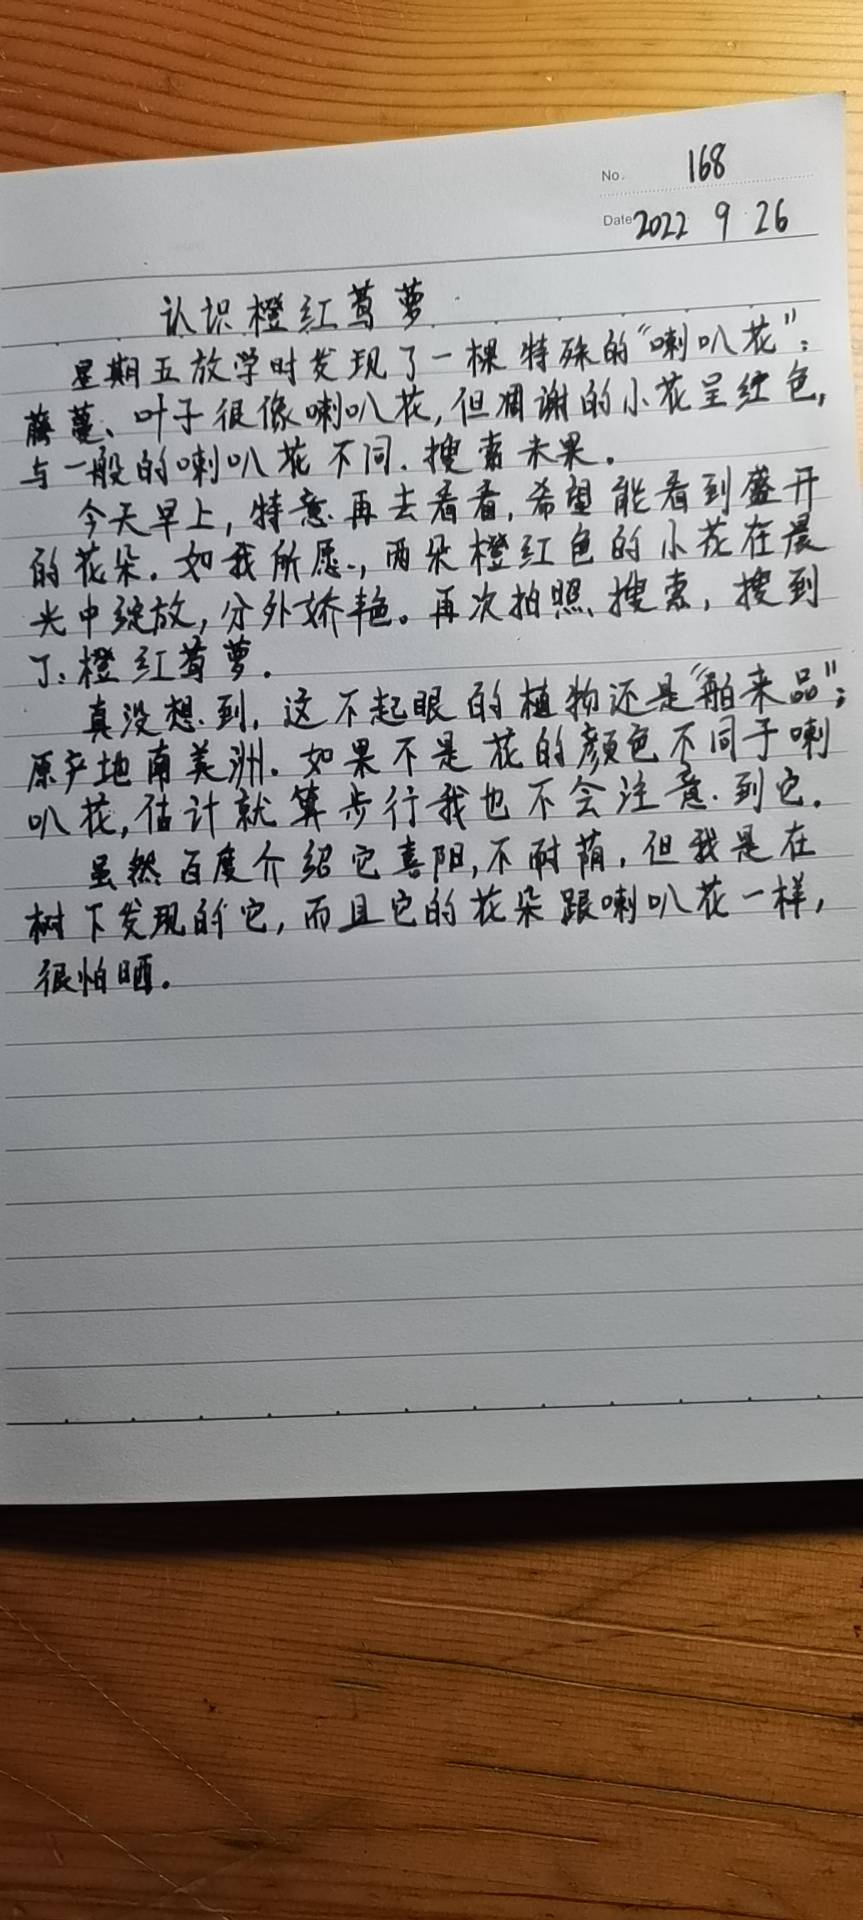 No. 168
Date 2022 9 26
认识橙红茑萝
星期五放学时发现了一棵特殊的“喇叭花”：
藤蔓、叶子很像喇叭花，但凋谢的小花呈红色，
与一般的喇叭花不同.搜索未果。
今天早上，特意再去看看，希望能看到盛开
的花朵。如我所愿，两朵橙红色的小花在晨
光中绽放，分外娇艳。再次拍照、搜索，搜到
了：橙红茑萝。
真没想到，这不起眼的植物还是“舶来品”；
原产地南美洲。如果不是花的颜色不同于喇
叭花，估计就算步行我也不会注意到它。
虽然百度介绍它喜阳，不耐荫，但我是在
树下发现的它，而且它的花朵跟喇叭花一样，
很怕晒。